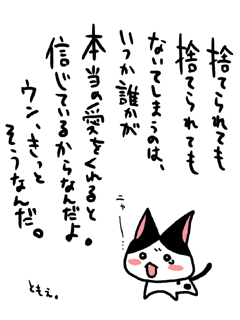 捨てられても
捨てられても
ないてしまうのは、
いつか誰かが
本当の愛をくれると
信じているからなんだよ。
ウン、きっと
そうなんだ。
ニャー…
ともえ。